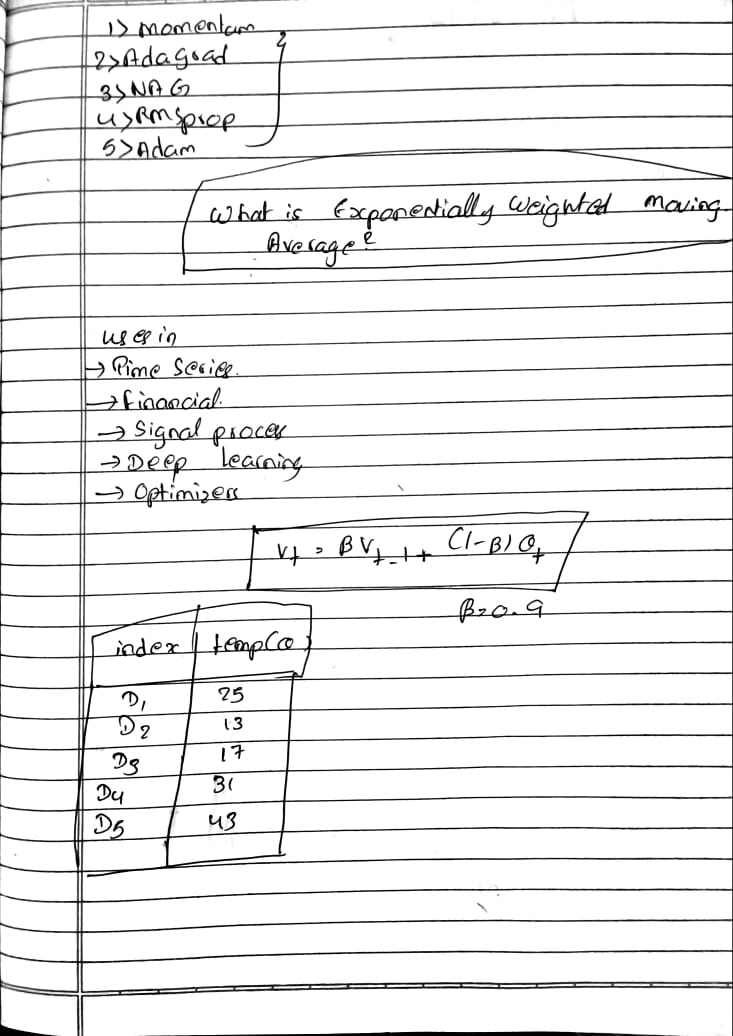 1> Momentum
2> Adagrad
3> NAG
4> RMSprop
5> Adam
What is Exponentially Weighted Moving
Average?
uses in
→ Time Series.
→ financial.
→ Signal process
→ Deep Learning
→ Optimizers
Vt = βVt-1 + (1-β)θt
β=0.9
index temp(θ)
D1 25
D2 13
D3 17
D4 31
D5 43